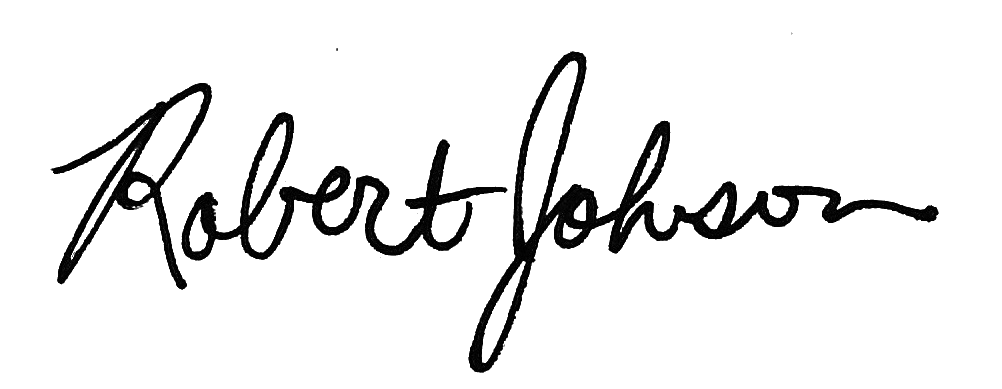 Robert Johnson